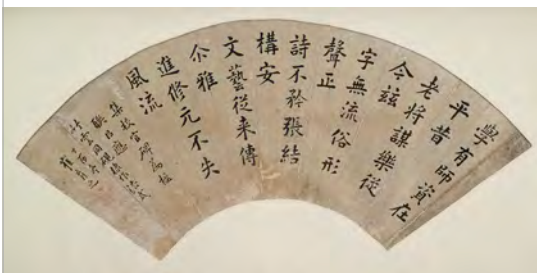 學有師資在
平昔
老將謀樂從
今茲
字無流俗形
聲正
詩不矜張結
構安
文藝從来傳
尒雅
進修元不失
風流
集校官碑為